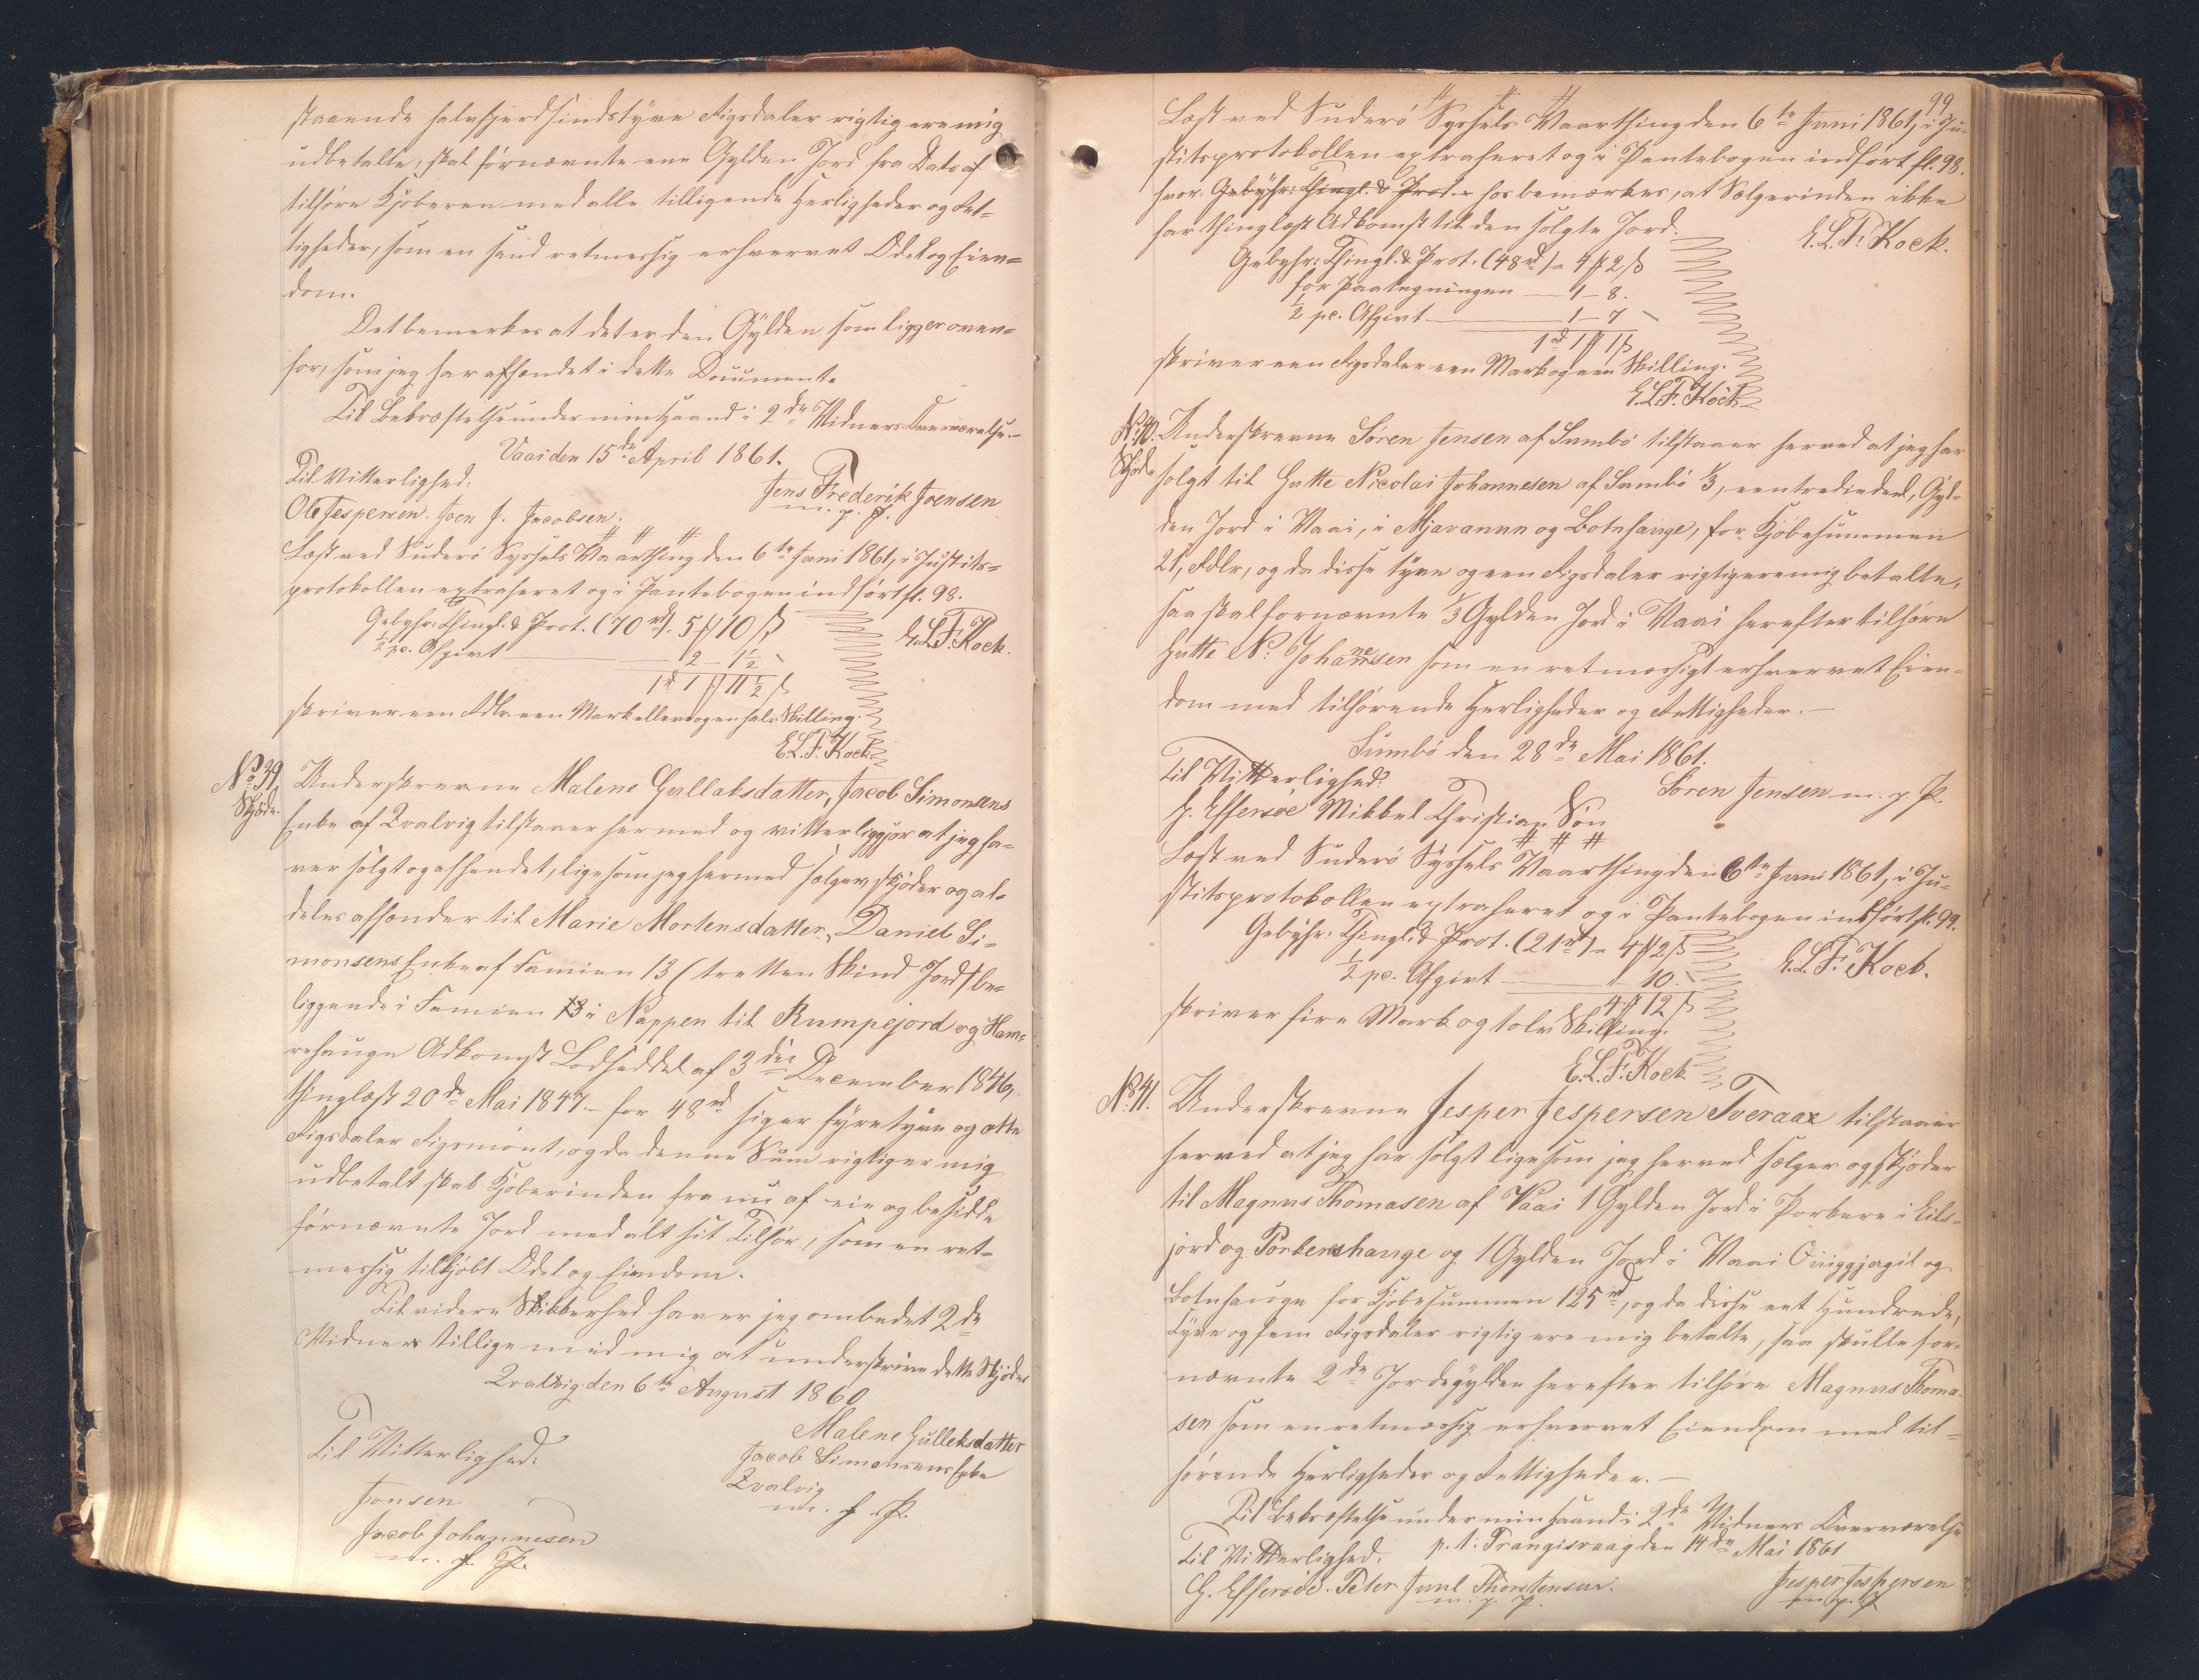 staaende halvfjerdsindstyve Rigsdaler rigtig ere mig
udbetalte, skal förnævnte ene Gylden Jord fra Dato af
tilhöre Kjöberen med alle tilligende Herligheder og Ret-
tigheder, som en sand retmessig erhvervet Odel og Eien-
dom.
Det bemerkes at det er den Gylden som ligger oven-
for, som jeg har afhændet i dette Document.
Til Bekræftelse under min Haand i 2de Vidners Overværelse.-
Vaai den 15de April 1861.
Til Vitterlighed:
Jens Frederik Joensen
m. p. P.
Ole Jespersen. Joen J. Jacobsen.
# # #
Læst ved Suderö Syssels Vaarthing den 6te Juni 1861, i Justits-
protokollen extraheret og i Pantebogen indfört fl. 98.
Gebyhr: Thingl. & Prot. (70 rd) - 5 # 10 ß
E.L.F. Kock.
½ pc. Afgivt 2 - 1½
1 rd 1 # 11½ ß
skriver een Rdlr. een Mark elleve og en halv Skilling.
E.L.F. Kock
No 39.
Skjöde.
Underskrevne Malene Gullaksdatter, Jacob Simonsens
Enke af Qvalvig tilstaaer hermed og vitterliggjör at jeg ha-
ver solgt og afhendet, ligesom jeg hermed sælger, skjöder og al-
deles afhender til Marie Mortensdatter, Daniel Si-
monsens Enke af Famien 13 (tretten Skind Jord) be-
liggende i Famien i Nappen til Rumpejord og Ham-
rehauge Adkomst Lodseddel af 3die December 1846,
thinglæst 20de Mai 1847. - for 48 rd siger fyretyve og otte
Rigsdaler Rigsmönt, og da denne Sum rigtig er mig
udbetalt skal Kjöberinden fra nu af eie og besidde
förnævnte Jord med alt sit Tilhör, som en ret-
messig tilkjöbt Odel og Eiendom.
Til videre Sikkerhed haver jeg ombedet 2de
Vidner tillige med mig at underskrive dette Skjöde
Qvalvig den 6te August 1860
Malene Gulleksdatter
Til Vitterlighed:
Jacob Simonsens Enke
Qvalvig
m. f. P.
Jonsen
Jacob Johannesen
m. f. P.
99
# # #
Læst ved Suderö Syssels Vaarthing den 6te Juni 1861, i Ju-
stitsprotokollen extraheret og i Pantebogen indfört fl. 98.
hvor Gebyhr: Thingl. & Prot. - hos bemærkes, at Sælgerinden ikke
har thinglæst Adkomst til den solgte Jord.
E.L.F. Kock.
Gebyhr: Thingl. & Prot. (48 rd) - 4 # 2 ß
for Paategningen - 1 - 8.
½ pc. Afgivt 1 - 7
1 rd 1 # 1 ß
skriver een Rigsdaler een Mark og een Skilling.
E.L.F. Kock
No 40.
Skjöde
Underskrevne Sören Jensen af Sumbö tilstaaer herved at jeg har
solgt til Gutte Nicolai Johannesen af Sumbö 1/3, een tredindeel, Gyl-
den Jord i Vaai, i Mjavanun og Botnhauge, for Kjöbesummen
21, Rdlr, og da disse tyve og een Rigsdaler rigtig ere mig betalte,
saa skal fornævnte 1/3 Gylden Jord i Vaai herefter tilhöre
Gutte N. Johannesen som en retmæssigt erhvervet Eien-
dom med tilhörende Herligheder og Rettigheder. -
Sumbö den 28de Mai 1861.
Til Vitterlighed:
Sören Jensen m. p. P.
G. Effersöe Mikkel Christian Sön
# # #
Læst ved Suderö Syssels Vaarthing den 6te Juni 1861, i Ju-
stitsprotokollen extraheret og i Pantebogen indfört fl. 99.
Gebyhr: Thingl. & Prot. (21 rd) - 4 # 2 ß
½ pc. Afgivt 10.
E.L.F. Kock.
4 # 12 ß
skriver fire Mark og tolv Skilling.
E.L.F. Kock
No 41.
Underskrevne Jesper Jespersen Tveraae tilstaaer
herved at jeg har solgt ligesom jeg herved sælger og skjöder
til Magnus Thomasen af Vaai 1 Gylden Jord i Porkere i Kils-
jord og Porkershauge og 1 Gylden Jord i Vaai Ouiggjagil og
Botnhauge for Kjöbesummen 125 rd, og da disse eet Hundrede,
tyve og fem Rigsdaler rigtig ere mig betalte, saa skulle for-
nævnte 2de Jordegylden herefter tilhöre Magnus Thoma-
sen som en retmæssig erhvervet Eiendom med til-
hörende Herligheder og Rettigheder. -
Til Bekræftelse under min Haand i 2de Vidners Overværelse
p. t. Trangisvaag den 14de Mai 1861
Til Vitterlighed.
G. Effersöe. Peter Juul Thorstensen.
m. p. P.
Jesper Jespersen
m. p. P.